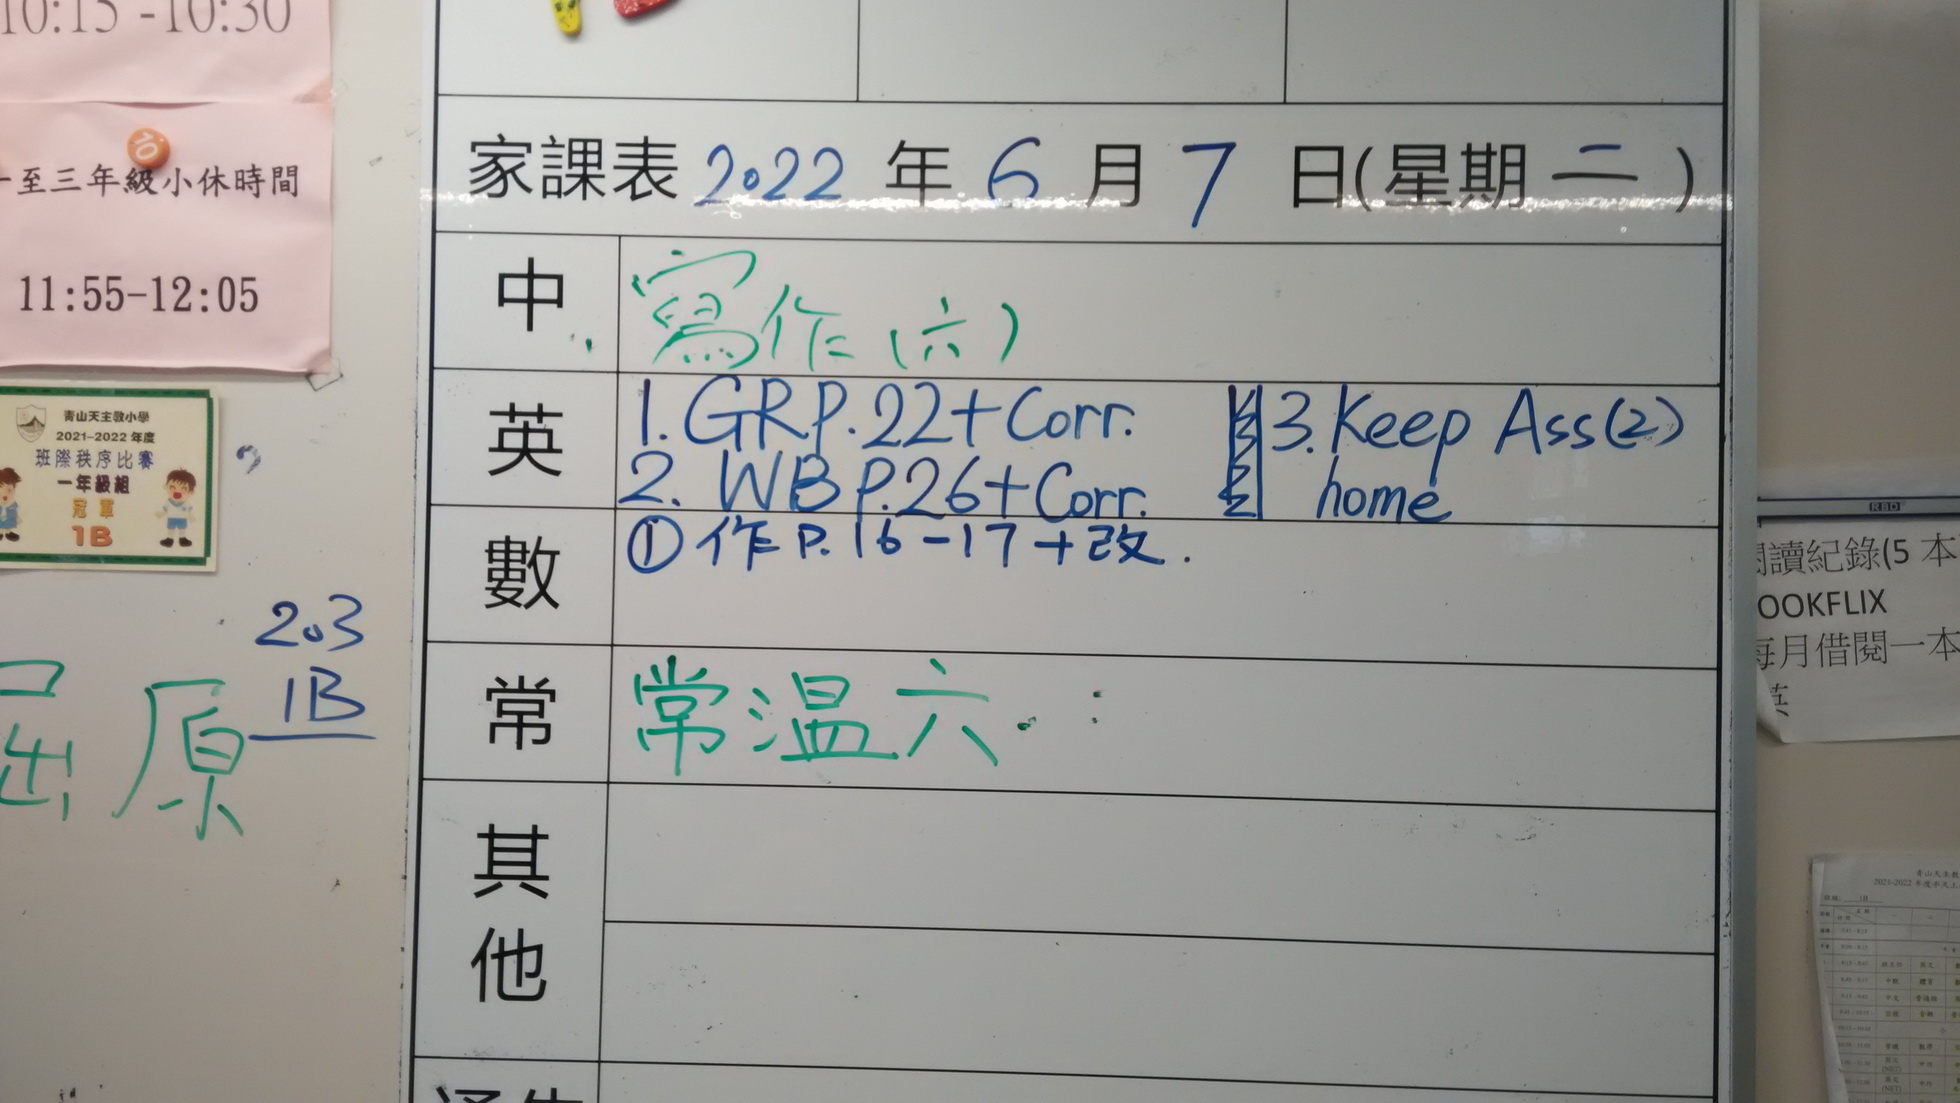 10:15 -10:30
一至三年級小休時間
11:55-12:05
青山天主教小學
2021-2022 年度
班際秩序比賽
一年級組
冠軍
1B
203
1B
屈原
家課表 2022 年 6 月 7 日(星期 二 )
中
寫作(六)
英
1. GRP.22+Corr.
2. WB P.26+Corr.
3. Keep Ass(2)
home
數
① 作 P. 16-17+改.
常
常温六.
其他
RBD
閱讀紀錄(5 本
OOKFLIX
每月借閱一本
英